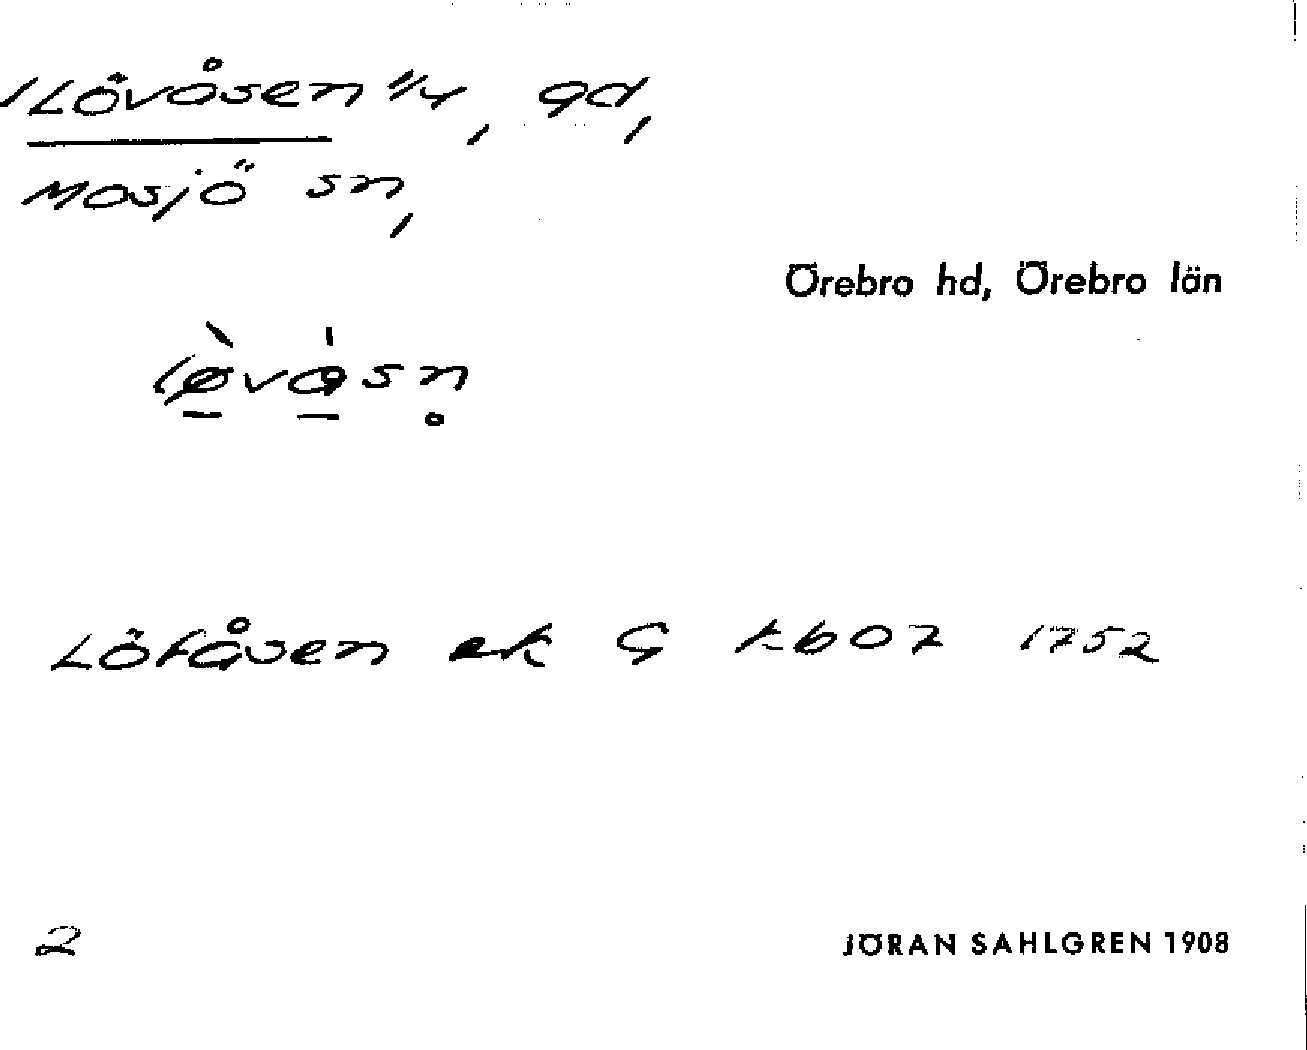 Lövåsen 1/4, gd,
Mosjö sn,
Örebro hd, Örebro län
lø̀vásn̥
Löfåsen ek G kb07 1752
2 JÖRAN SAHLGREN 1908